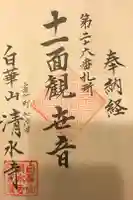 奉納経
第二十六番札所
十一面観世音
白華山清水寺